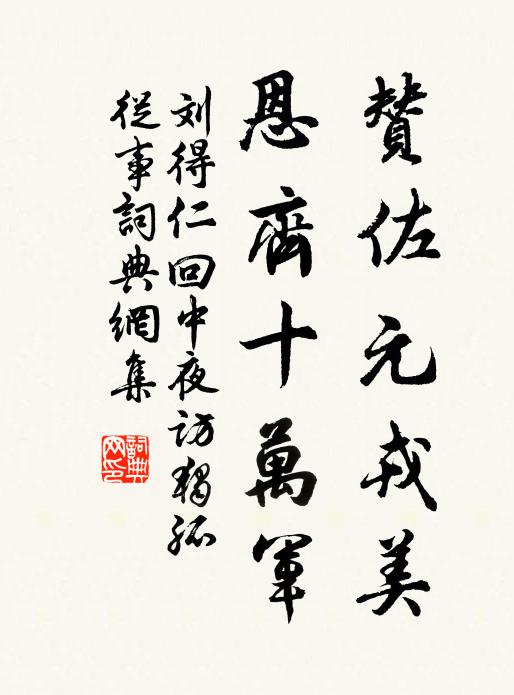 贊佐元戎美
恩齊十萬軍
刘得仁回中夜访獨孤
從事詞典網集
詞典网印